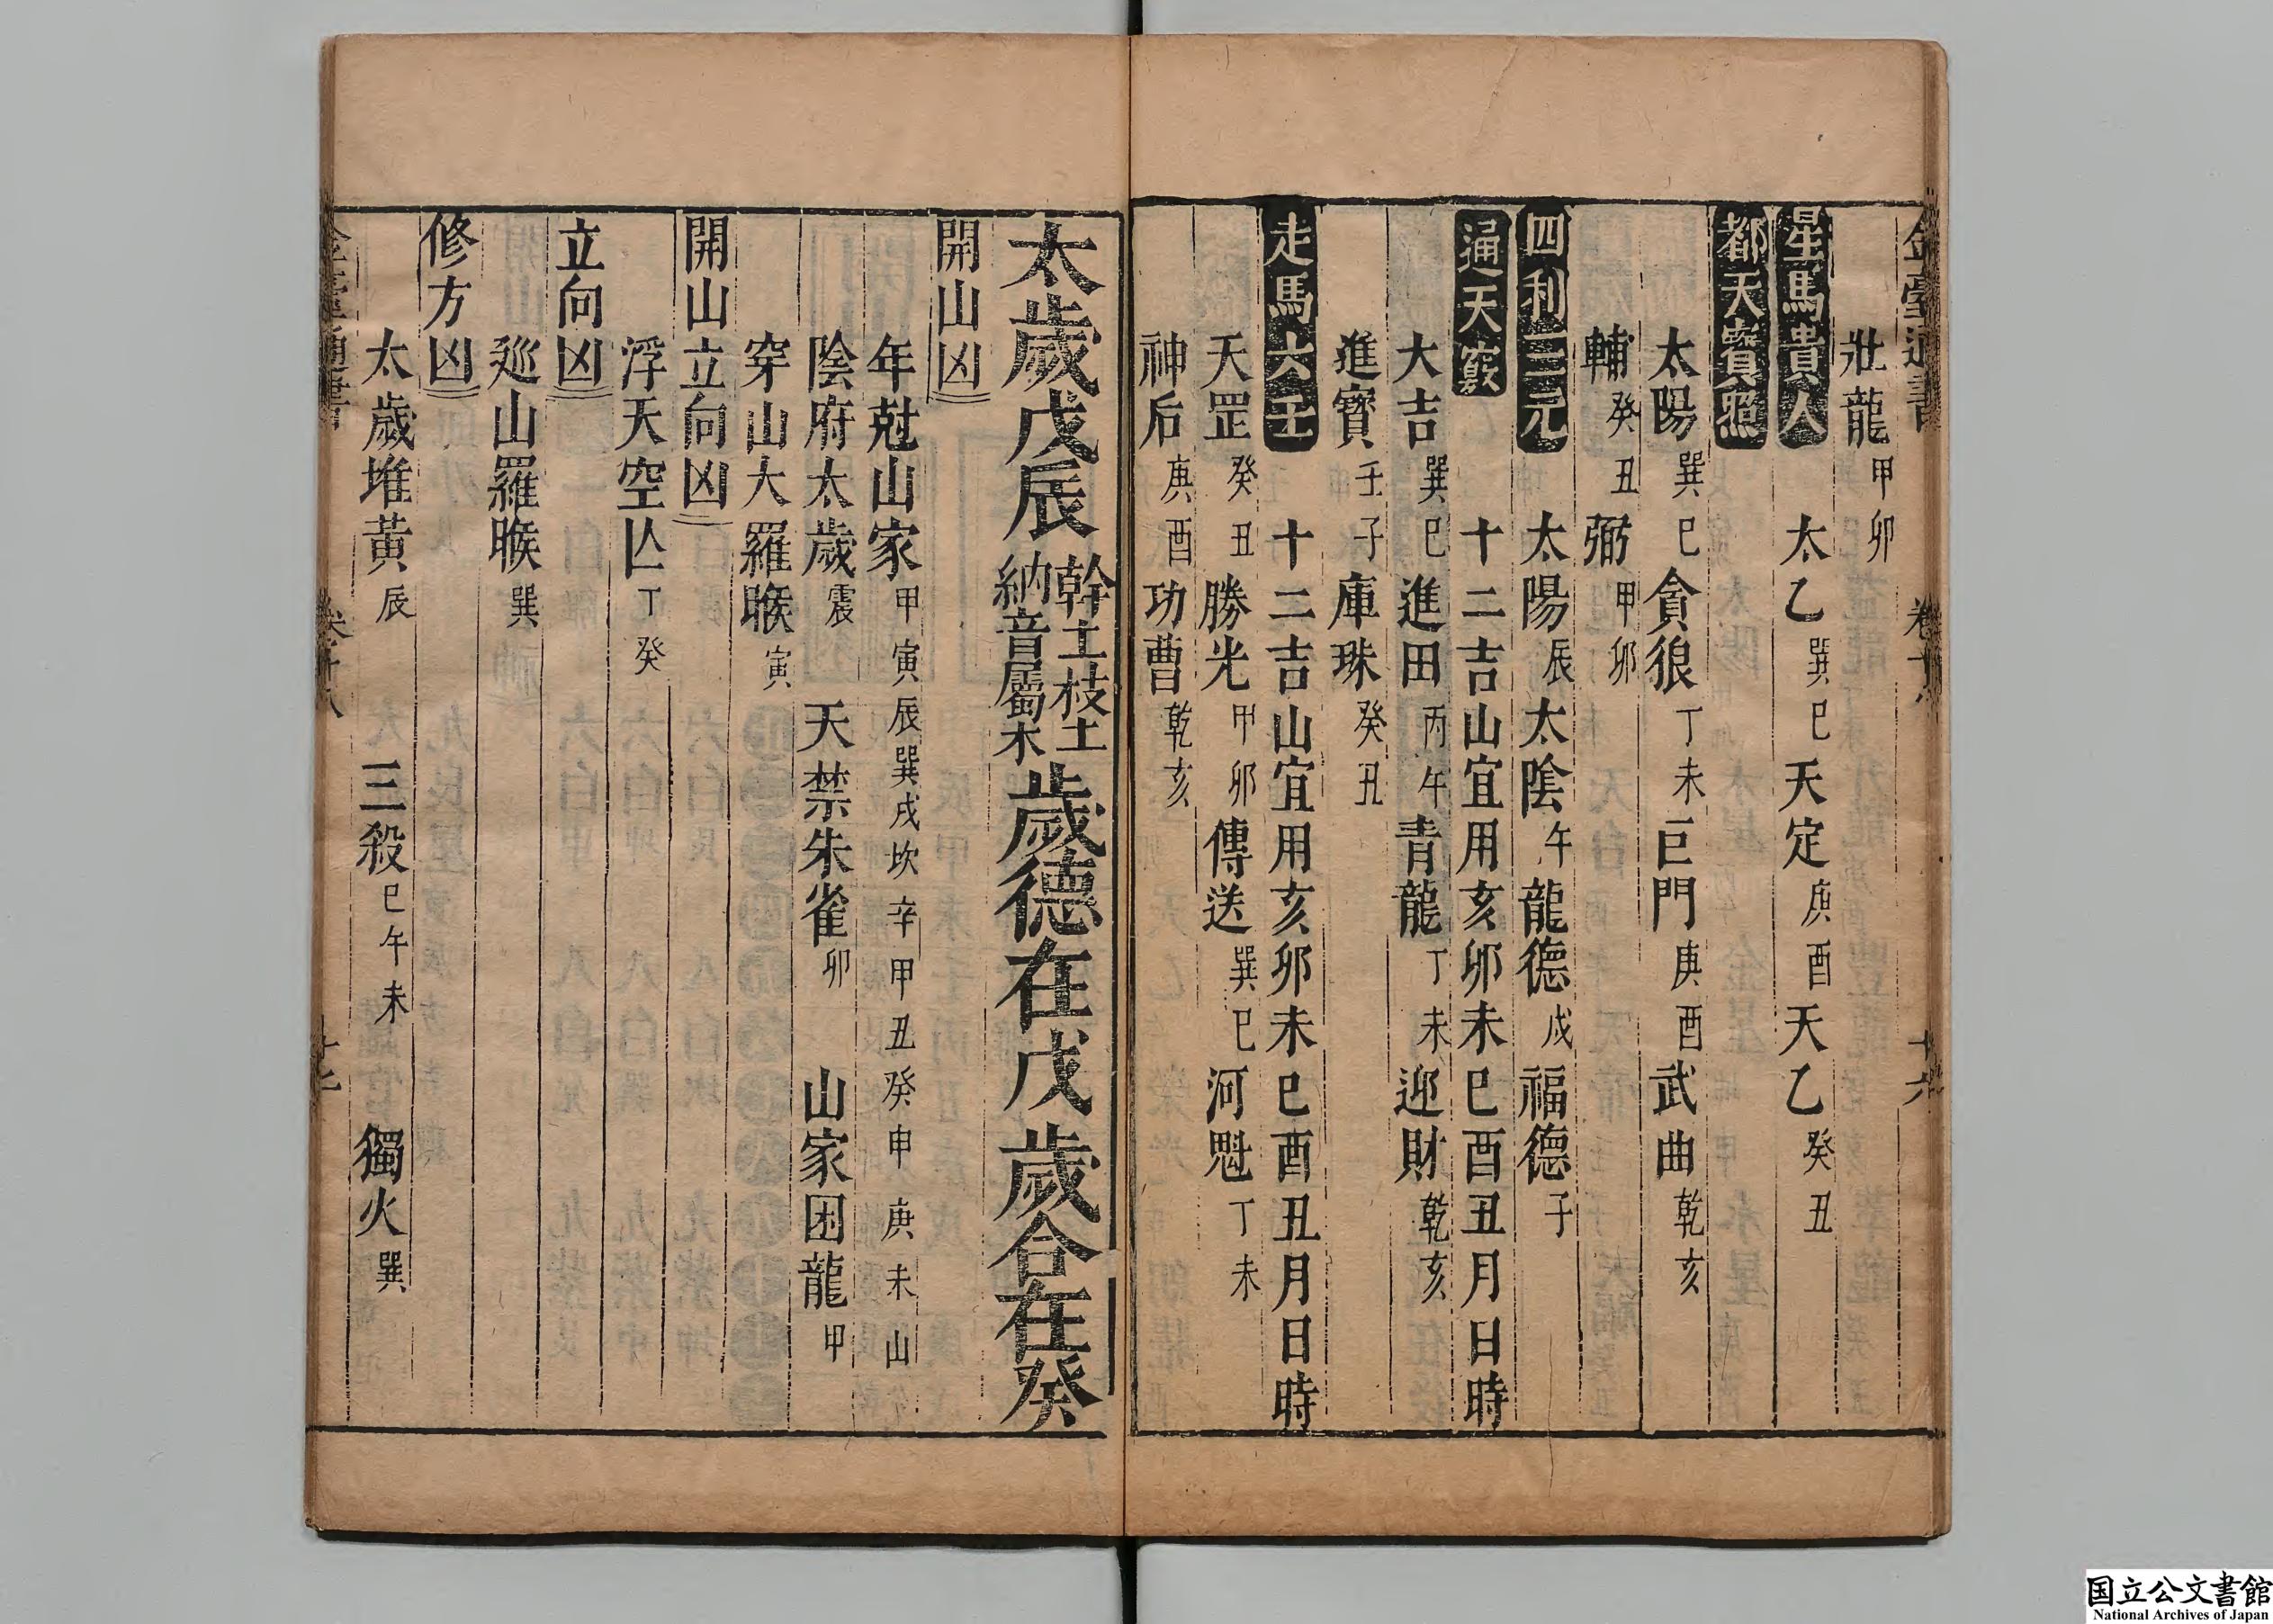 壯龍甲卯
星馬貴人 太乙巽巳天定庚酉天乙癸丑
都天寶照
太陽巽巳貪狼丁未巨門庚酉武曲乾亥
輔癸丑弼甲卯
四利三元 太陽辰太陰午龍德戌福德子
通天竅 十二吉山宜用亥卯未巳酉丑月日時
大吉巽巳進田丙午青龍丁未迎財乾亥
進寶壬子庫珠癸丑
走馬六壬 十二吉山宜用亥卯未巳酉丑月日時
天罡癸丑勝光甲卯傳送巽巳河魁丁未
神后庚酉功曹乾亥
太歲戊辰 幹土枝土 納音屬木 歲德在戊 歲合在癸
開山凶
年尅山家甲寅辰巽戌坎辛甲丑癸申庚未山
陰府太歲震 天禁朱雀卯 山家困龍甲
穿山大羅睺寅
開山立向凶
浮天空亾丁癸
立向凶
廵山羅睺巽
修方凶
太歲堆黃辰 三殺巳午未 獨火巽
国立公文書館
National Archives of Japan